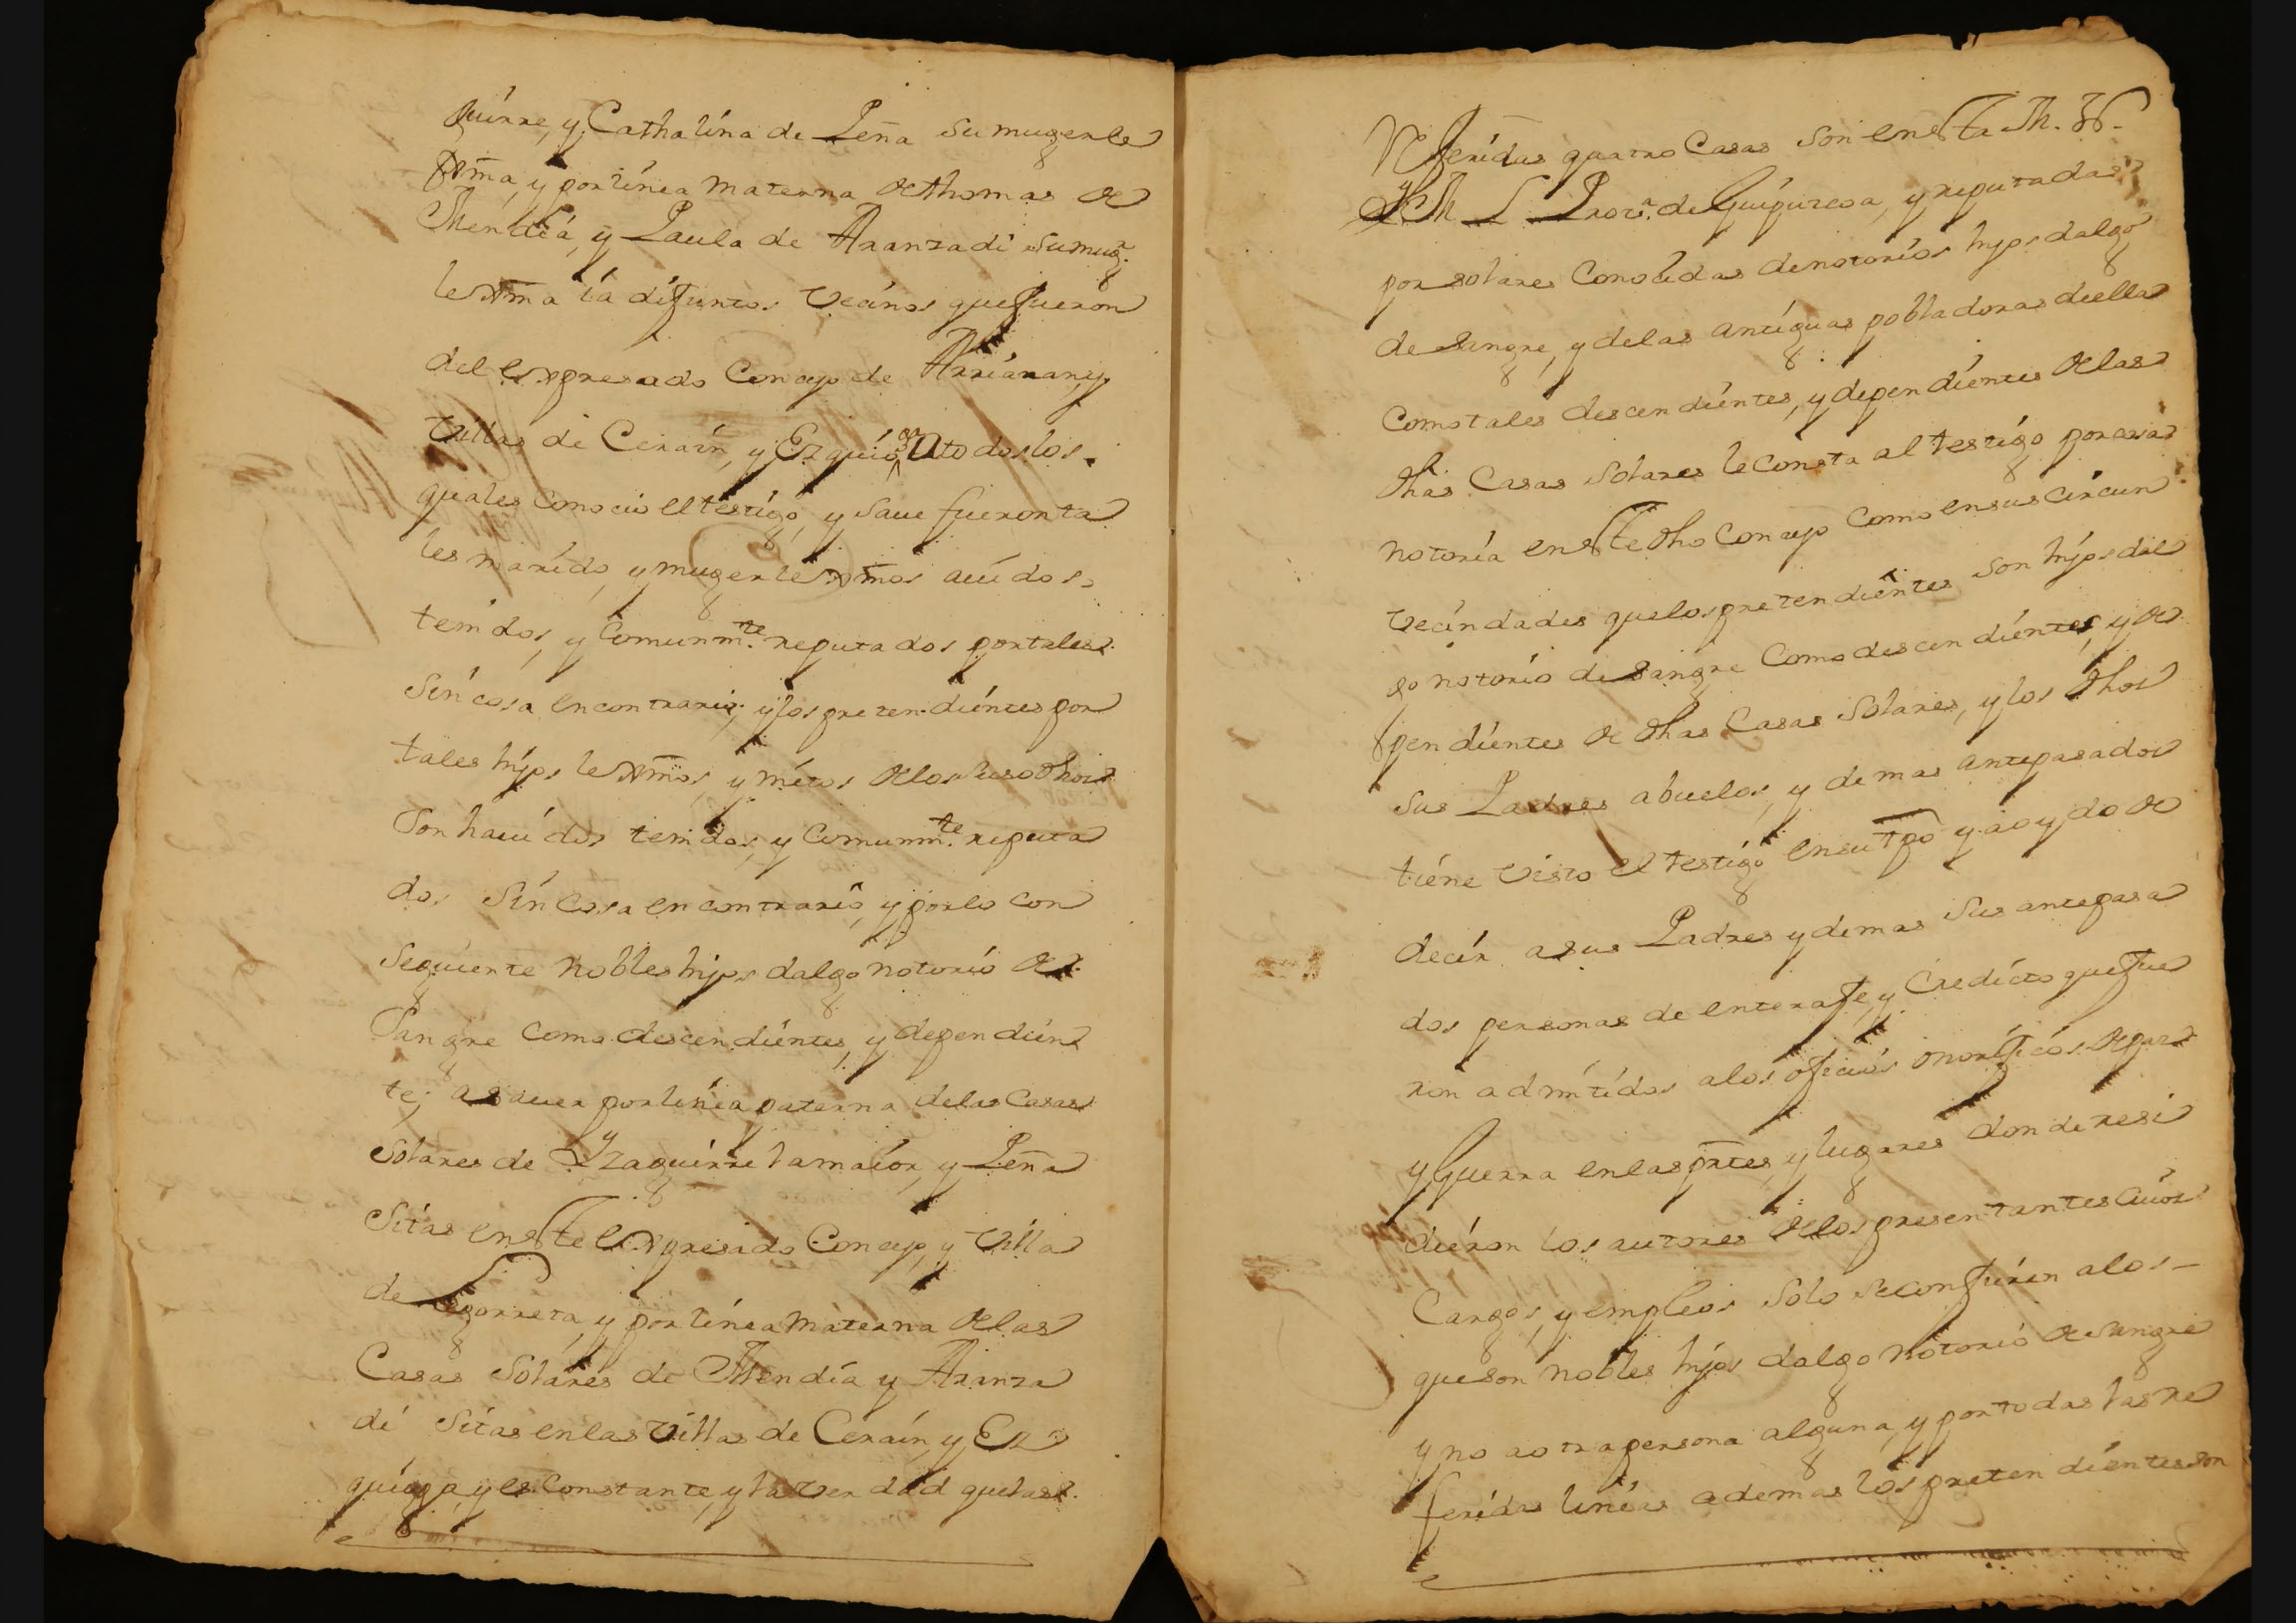 guirre, y Cathalina de Peña su muger le
xma, y por linea materna de thomas de
Mendia, y Paula de Aranzadi su mugr.
lexma ia difuntos vecinos que fueron
del expresado Concejo de Arriaran, y
villas de Cerain, y Ezquioga a todos los
quales conocio el testigo, y save fueron ta
les marido, y muger lexmos avidos,
tenidos, y comunmte. reputados por tales
sin cosa en contrario, y los pretendientes por
tales hijos lexmos, y nietos de los suso dhos
son havidos tenidos, y comunmte. reputa
dos sin cosa en contrario, y por lo con
seguiente nobles hijos dalgo notorio de
sangre como descendientes, y dependien
te; a saver por linea paterna de las Casas
Solares de Yzaguirre la maior, y Peña
sitas en este expresado Concejo, y villa
de Legorreta, y por linea materna de las
Casas Solares de Mendia y Aranza
di sitas en las villas de Cerain, y Ez
quioga, y es constante, y la verdad que las
referidas quatro Casas son en esta M. N.
y M L Prova. de Guipuzcoa, y reputadas
por solares conocidas de notorios hijos dalgo
de sangre, y de las antiguas pobladoras de ella
como tales descendientes, y dependientes de las
dhas Casas Solares le consta al testigo por cosa
notoria en este dho Concejo como en sus circun
vecindades que los pretendientes son hijos dal
go notorio de sangre como descendientes, y de
pendientes de dhas Casas Solares, y los dhos
sus Padres abuelos, y demas antepasados
tiene visto el testigo en su tpo y a oydo de
decir a sus Padres y demas sus antepasa
dos personas de entera fe, y credicto que fue
ron admitidos a los oficios onorificos de paz
y Guerra en las ptes, y lugares donde resi
dieron los autores de los presentantes cuios
Cargos, y empleos solo se confieren a los
que son nobles hijos dalgo notorio de sangre
y no a otra persona alguna, y por todas las re
feridas lineas ademas los pretendientes son